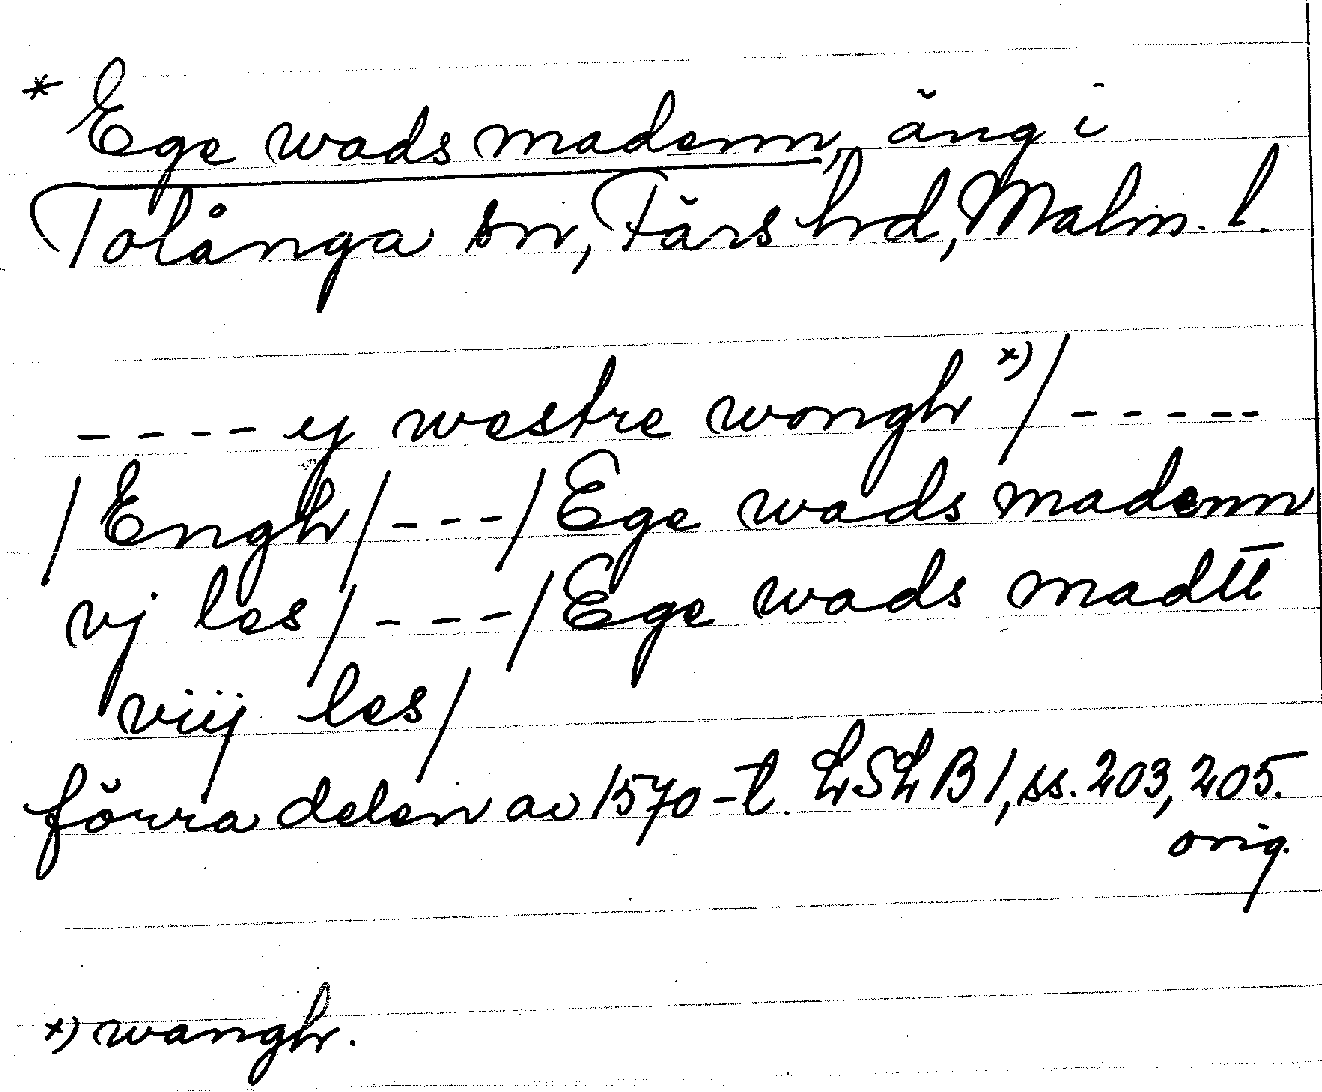 * Ege wads madenn, äng i
Tolånga sn, Färs hd, Malm. l.
---- y westre wongh x) / -----
/ Engh / --- / Ege wads madenn
vj les / --- / Ege wads madtt
viij les /
förra delen av 1570-t. LSLB 1, ss. 203, 205.
orig.
x) wangh.